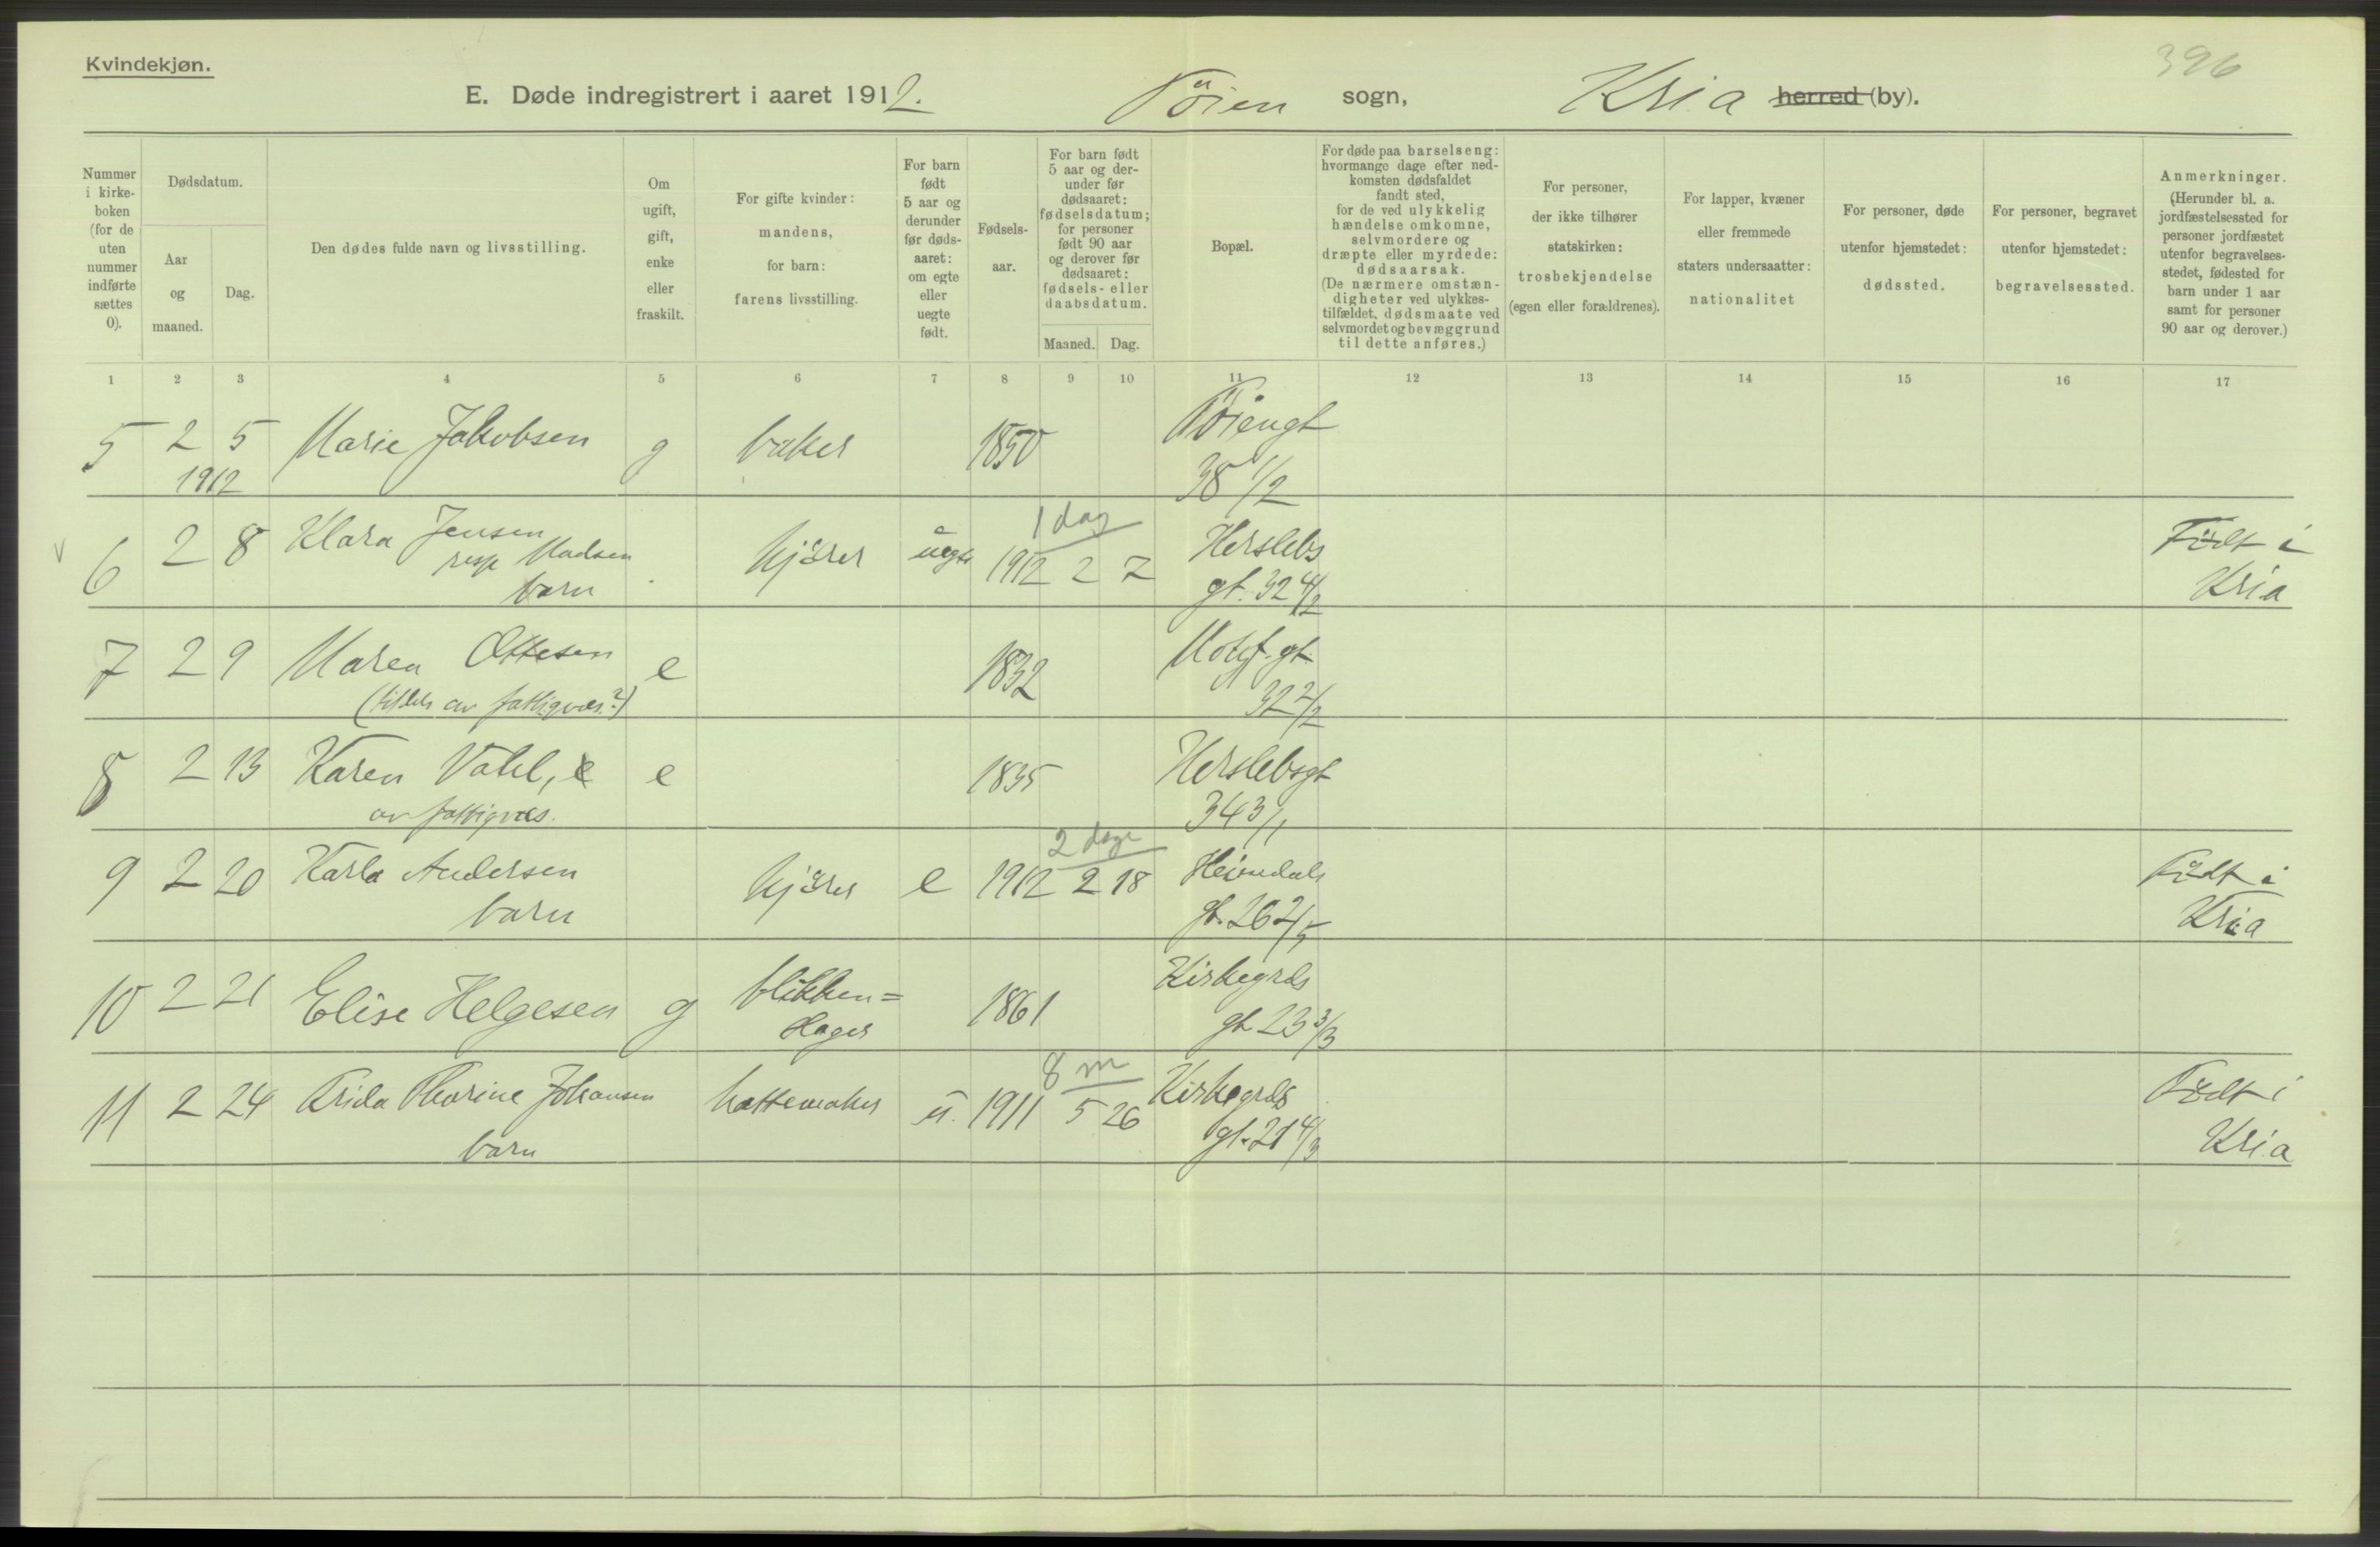 Kvindekjøn.
396
E. Døde indregistrert i aaret 1912. Töien sogn, Kria herred (by).
Nummer i kirkeboken (for de uten nummer indførte sættes 0).
Dødsdatum.
Aar og maaned.
Dag.
Den dødes fulde navn og livsstilling.
Om ugift, gift, enke eller fraskilt.
For gifte kvinder: mandens, for barn: farens livsstilling.
For barn født 5 aar og derunder før dødsaaret: om egte eller uegte født.
Fødselsaar.
For barn født 5 aar og derunder før dødsaaret: fødselsdatum; for personer født 90 aar og derover før dødsaaret: fødsels- eller daabsdatum.
Maaned. Dag.
Bopæl.
For døde paa barselseng: hvormange dage efter nedkomsten dødsfaldet fandt sted, for de ved ulykkelig hændelse omkomne, selvmordere og dræpte eller myrdede: dødsaarsak. (De nærmere omstændigheter ved ulykkestilfældet, dødsmaate ved selvmordet og bevæggrund til dette anføres.)
For personer, der ikke tilhører statskirken: trosbekjendelse (egen eller forældrenes).
For lapper, kvæner eller fremmede staters undersaatter: nationalitet
For personer, døde utenfor hjemstedet: dødssted.
For personer, begravet utenfor hjemstedet: begravelsessted.
Anmerkninger. (Herunder bl. a. jordfæstelsessted for personer jordfæstet utenfor begravelsesstedet, fødested for barn under 1 aar samt for personer 90 aar og derover.)
1 2 3 4 5 6 7 8 9 10 11 12 13 14 15 16 17
5 2 5 Marie Jakobsen g baker 1850 Töiengt
1912 38 1/2
1 dag
6 2 8 Klara Jensen kjörer uegte 1912 2 7 Herslebs Födt i
resp Madsen gt. 32 4/2 Kria
barn
7 2 9 Maren Ottesen e 1832 gt.
(tildels av fattigvæs.?) 32 2/2
8 2 13 Karen Vahl, e e 1835 Herslebsgt
av fattigvæs. 34 3/1
2 dage
9 2 20 Karla Andersen kjörer e 1912 2 18 Heimdals Födt i
barn gt. 26 2/5 Kria
10 2 21 Elise Helgesen g blikken= 1861 Kirkegrds
slager gt 23 3/3
8 m
11 2 24 Frida Thorine Johansen hattemaker u. 1911 5 26 Kirkegrds Födt i
barn gt. 21 4/3 Kria